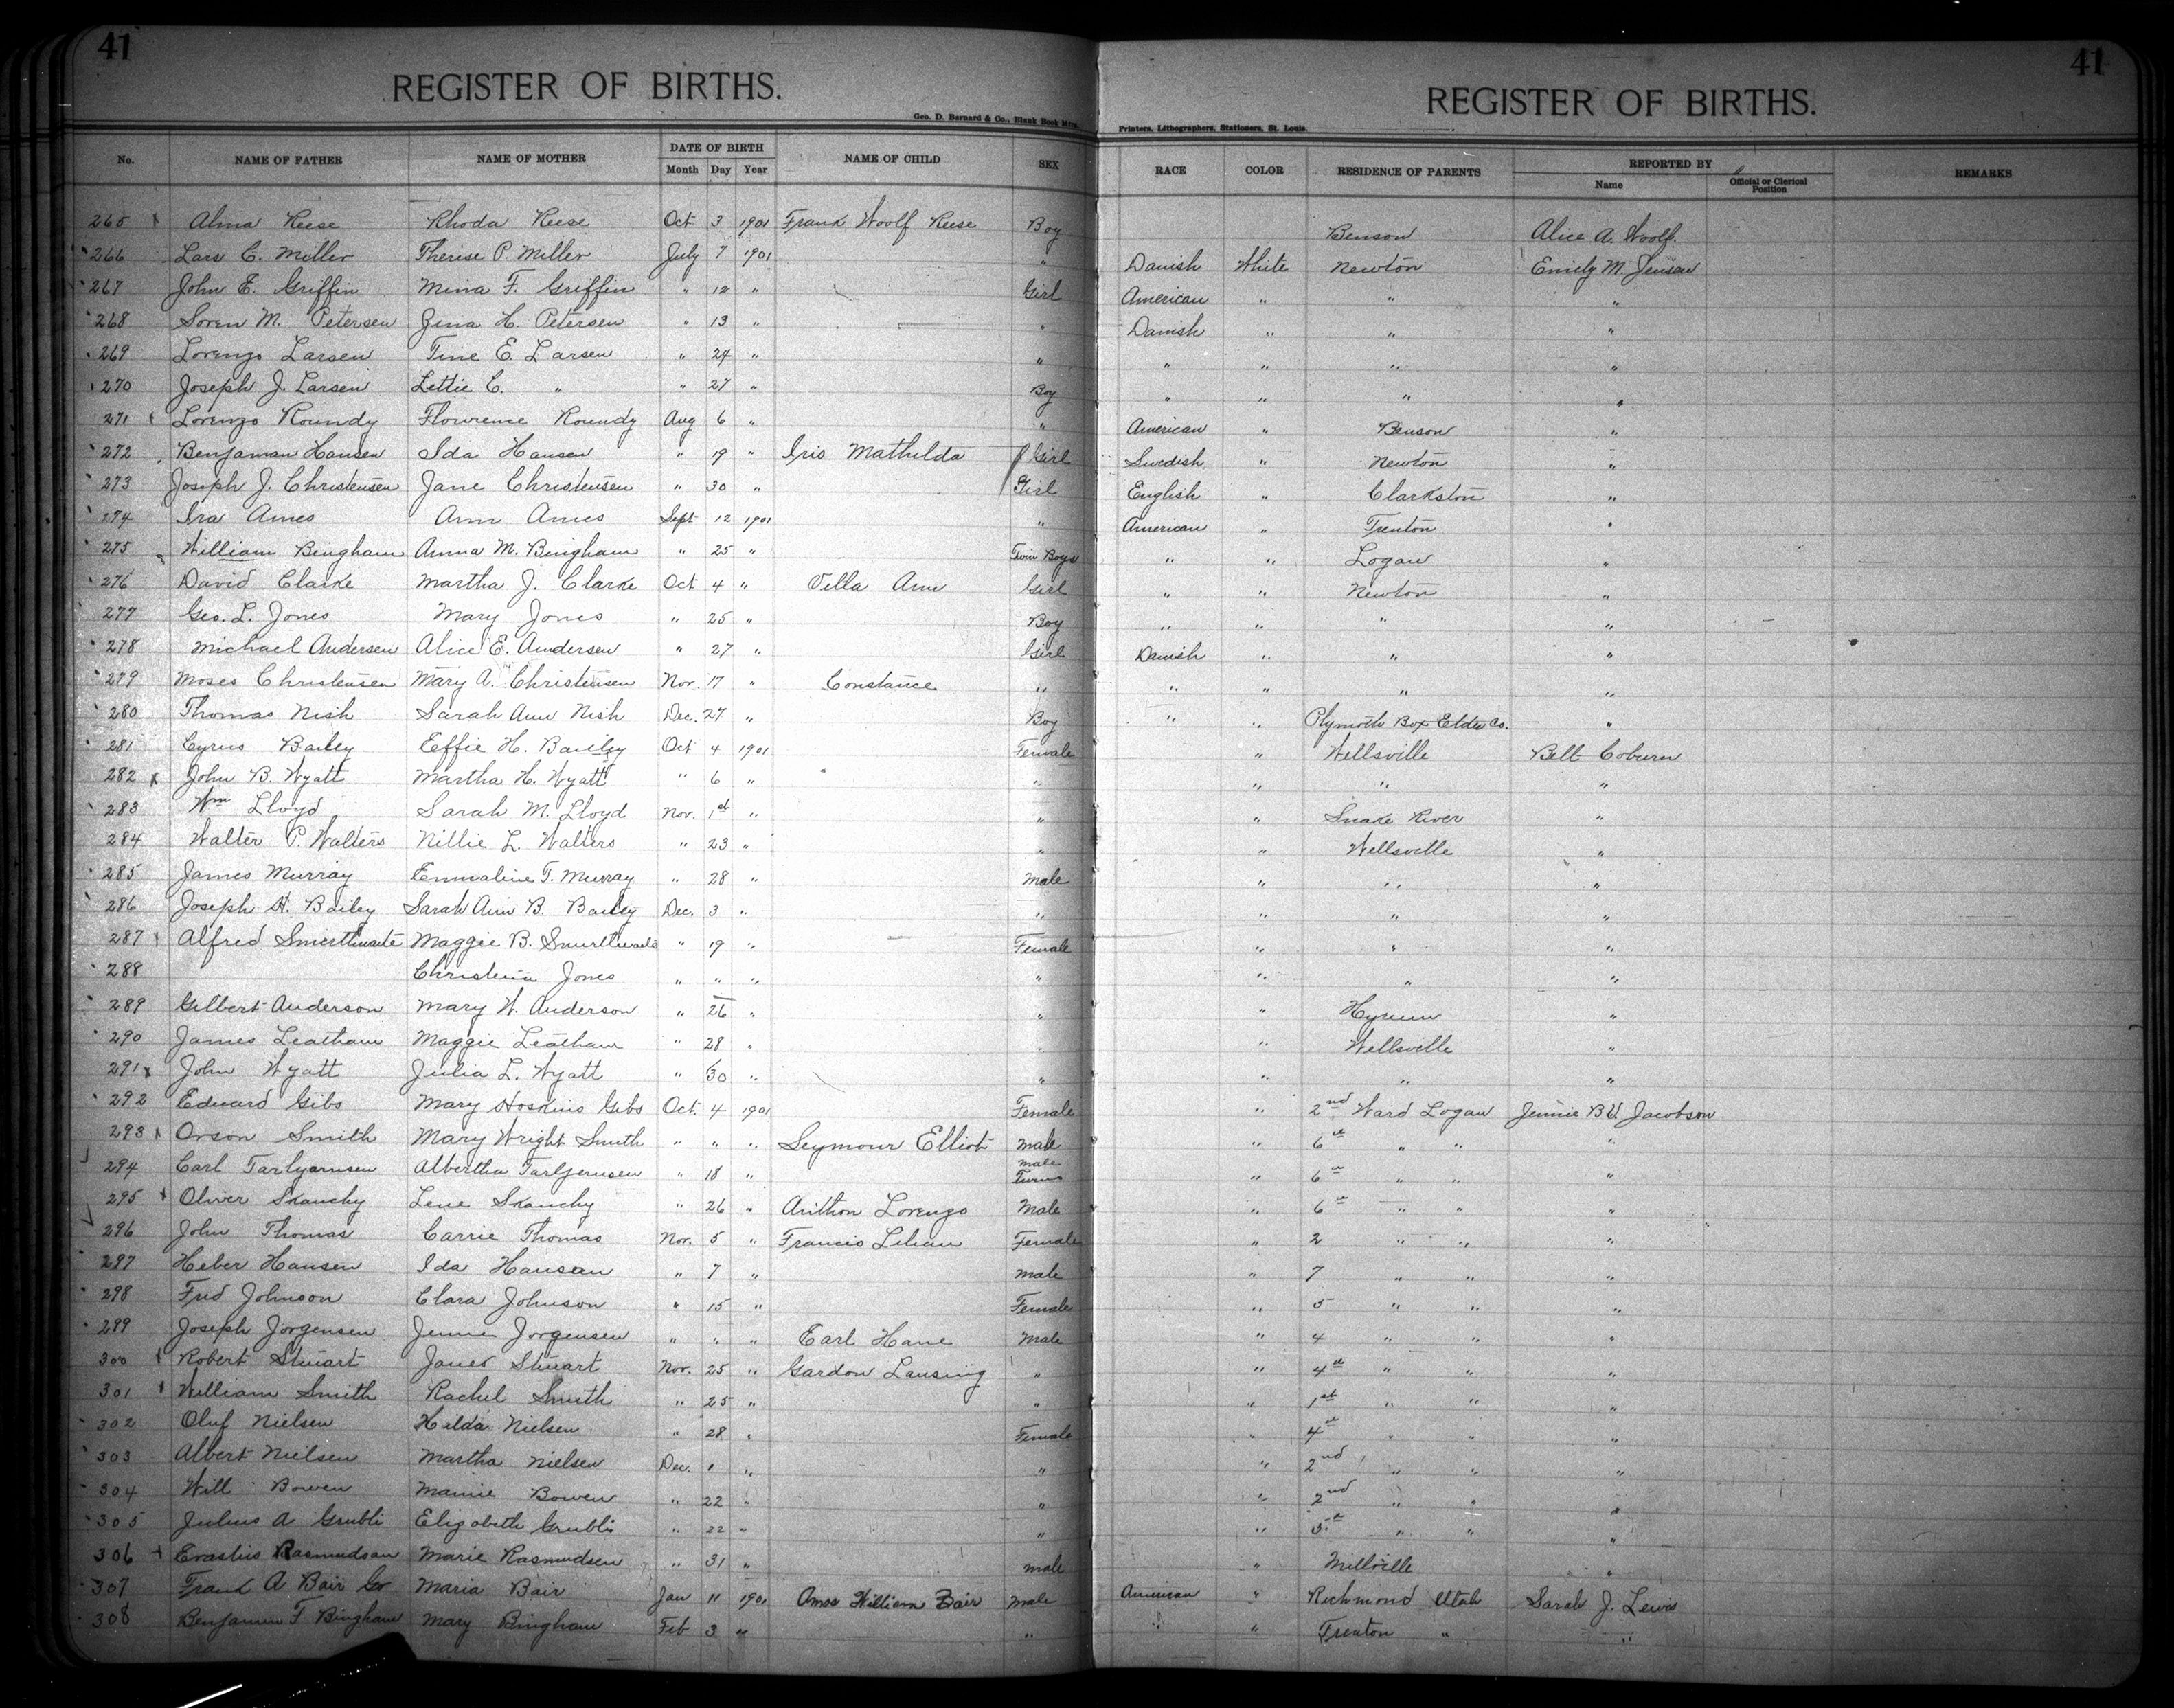 41
REGISTER OF BIRTHS.
Geo. D. Barnard & Co., Blank Book Mfrs.
41
REGISTER OF BIRTHS.
Printers, Lithographers, Stationers, St. Louis.
No. NAME OF FATHER NAME OF MOTHER DATE OF BIRTH Month Day Year NAME OF CHILD SEX RACE COLOR RESIDENCE OF PARENTS REPORTED BY Name Official or Clerical Position REMARKS
265 x Alma Reese Rhoda Reese Oct 3 1901 Frank Woolf Reese Boy Benson Alice A. Woolf.
266 Lars C. Miller Therise P. Miller July 7 1901 " Danish White Newton Emily M. Jensen
267 John E. Griffin Mina F. Griffin " 12 " Girl American " " "
268 Soren M. Petersen Zina H. Petersen " 13 " " Danish " " "
269 Lorenzo Larsen Tine E. Larsen " 24 " " " " " "
270 Joseph J. Larsen Lettie C. " " 27 " Boy " " " "
271 Lorenzo Roundy Flowrence Roundy Aug 6 " " American " Benson "
272 Benjaman Hansen Ida Hansen " 19 " Iris Mathilda Girl Swedish " Newton "
273 Joseph J. Christensen Jane Christensen " 30 " Girl English " Clarkston "
274 Ira Ames Ann Ames Sept 12 1901 " American " Trenton "
275 William Bingham Anna M. Bingham " 25 " Twin Boys " " Logan "
276 David Clarke Martha J. Clarke Oct 4 " Vella Ann Girl " " Newton "
277 Geo. L. Jones Mary Jones " 25 " Boy " " " "
278 Michael Andersen Alice E. Andersen " 27 " Girl Danish " " "
279 Moses Christensen Mary A. Christensen Nov. 17 " Constance " " " " "
280 Thomas Nish Sarah Ann Nish Dec. 27 " Boy " " Plymoth Box Elder Co. "
281 Cyrus Bailey Effie H. Bailey Oct 4 1901 Female " Wellsville Bell Coburn
282 x John B. Wyatt Martha H. Wyatt " 6 " " " " "
283 Wm Lloyd Sarah M. Lloyd Nov. 1st " " " Snake River "
284 Walter P. Walters Nillie L. Walters " 23 " " " Wellsville "
285 James Murray Emmaline T. Murray " 28 " Male " " "
286 Joseph H. Bailey Sarah Ann B. Bailey Dec. 3 " " " " "
287 Alfred Smurthwaite Maggie B. Smurthwaite " 19 " Female " " "
288 Christena Jones " " " " " " "
289 Gilbert Anderson Mary W. Anderson " 26 " " " Hyrum "
290 James Leatham Maggie Leatham " 28 " " " Wellsville "
291 x John Wyatt Julia L. Wyatt " 30 " " " " "
292 Edward Gibs Mary Hoskins Gibs Oct. 4 1901 Female " 2nd Ward Logan Jennie B W. Jacobson
293 x Orson Smith Mary Wright Smith " " " Seymour Elliot male " 6th " " "
294 Carl Albertha " 18 " male Twins " 6th " " "
295 x Oliver Skanchy Lene Skanchy " 26 " Lorenzo Male " 6th " " "
296 John Thomas Carrie Thomas Nov. 5 " Francis Lilian Female " 2 " " "
297 Heber Hansen Ida Hansen " 7 " male " 7 " " "
298 Fred Johnson Clara Johnson " 15 " Female " 5 " " "
299 Joseph Jorgensen Jennie Jorgensen " " " Earl Hane Male " 4 " " "
300 Robert Stuart Janes Stuart Nov. 25 " Gardon Lansing " " 4th " " "
301 William Smith Rachel Smith " 25 " " " 1st " " "
302 Oluf Nielsen Hilda Nielsen " 28 " Female " 4th " " "
303 Albert Nielsen Martha Nielsen Dec. 1 " " " 2nd " " "
304 Will Bowen Mamie Bowen " 22 " " " 2nd " " "
305 Julius A Grubli Elizabeth Grubli " 22 " " " 5th " " "
306 Erastus Rasmudsen Marie Rasmudsen " 31 " male " Millville "
307 Frank A Bair Maria Bair Jan 11 1901 Amos William Bair male American " Richmond Utah Sarah J. Lewis
308 Benjamin F Bingham Mary Bingham Feb 3 " " " " Trenton " "